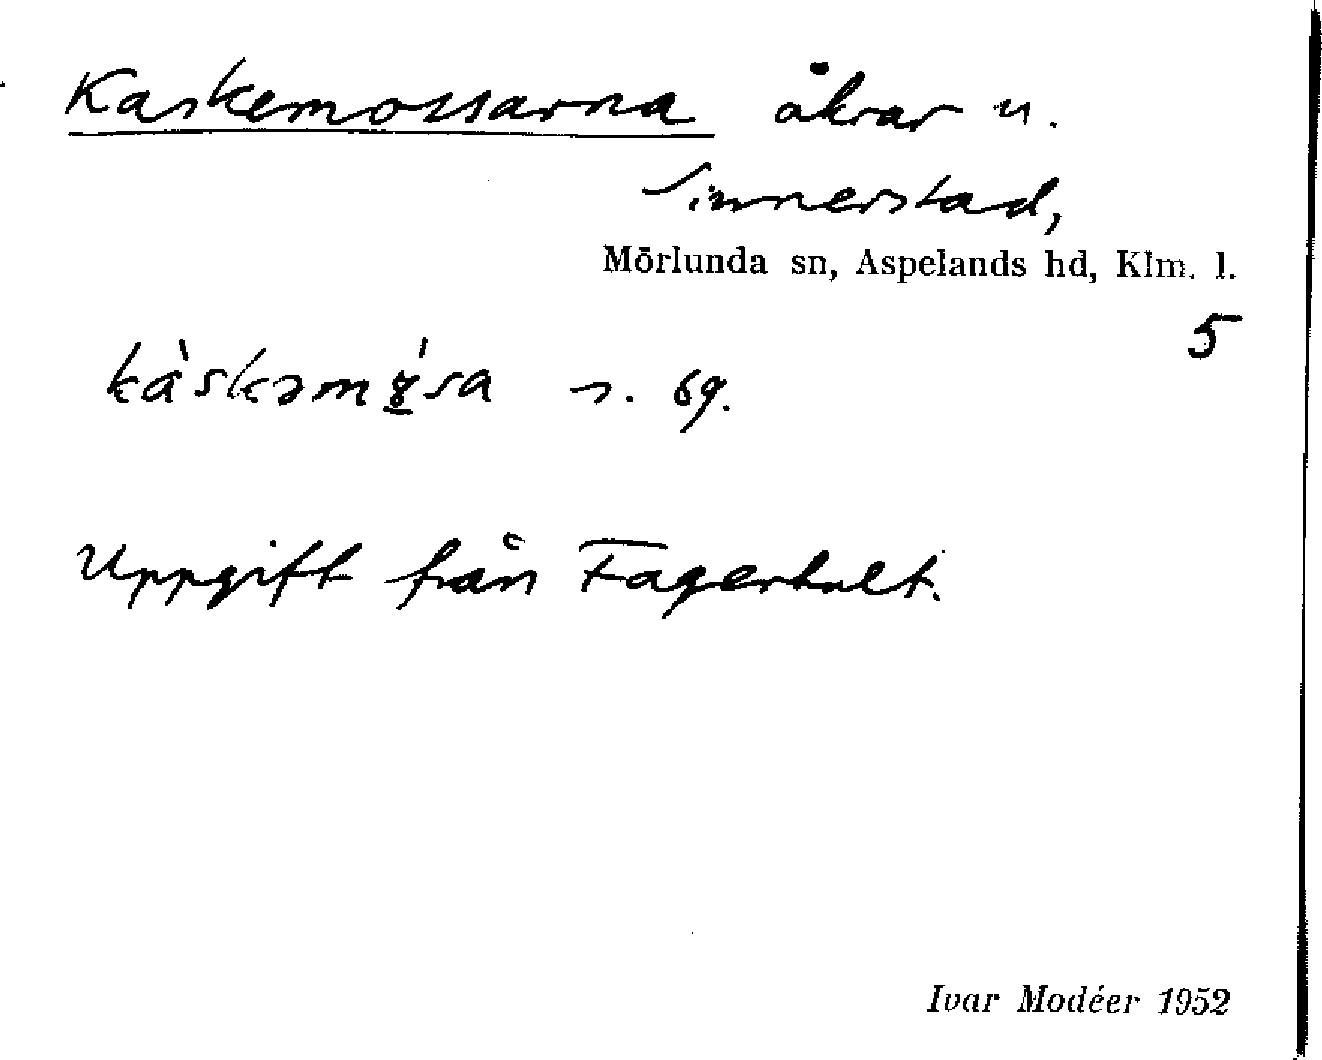 Kaskemossarna åkrar u.
Sinnerstad,
Mörlunda sn, Aspelands hd, Klm. l.
5
kàskəmɤ̲́sa s. 69.
Uppgift från Fagerhult.
Ivar Modéer 1952